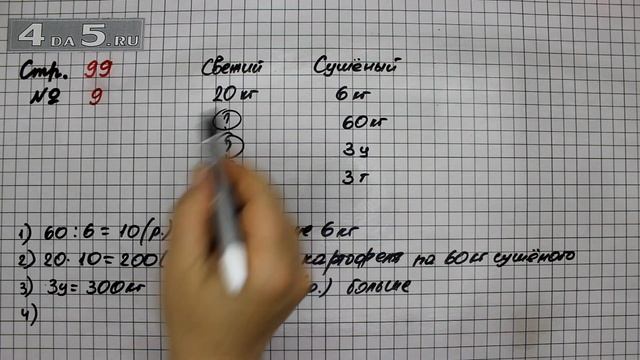 4DA5.RU
Стр. 99 Свежий Сушёный
№ 9 20 кг 6 кг
? 60 кг
? 3 ц
3 т
1) 60 : 6 = 10 (р.) 6 кг
2) 20 · 10 = 200 ( картофеля на 60 кг сушёного
3) 3ц = 300кг .) больше
4)